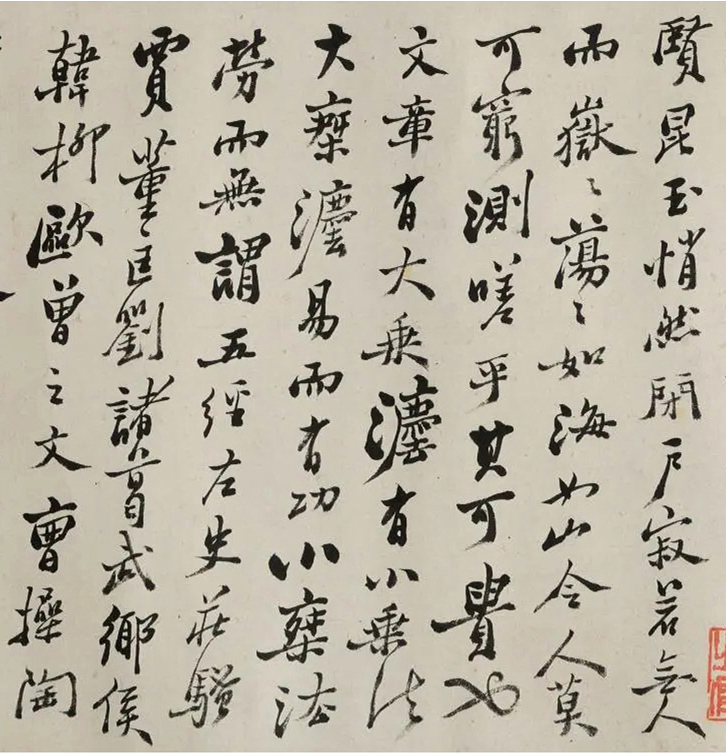 賢昆玉悄然閉戶寂若無人
而嶽〻蕩〻如海如山令人莫
可窮測嗟乎其可貴也
文章有大乘灋有小乘法
大椉灋易而有功小椉法
勞而無謂五經左史莊騷
賈董匡劉諸葛武鄉侯
韓柳歐曾之文曹操陶